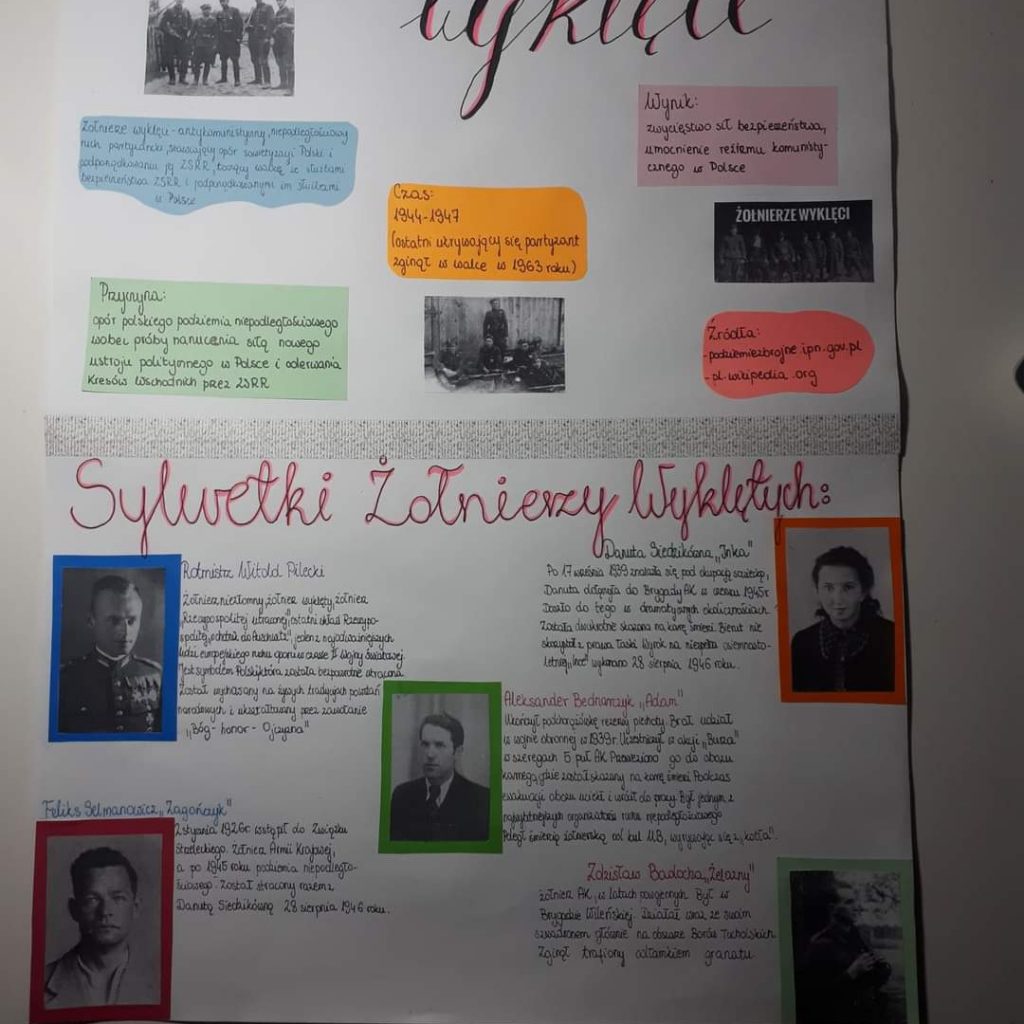 wyklęci
Żołnierze wyklęci - antykomunistyczny, niepodległościowy
ruch partyzancki, stawiający opór sowietyzacji Polski i
podporządkowaniu jej ZSRR, toczący walkę ze służbami
bezpieczeństwa ZSRR i podporządkowanymi im służbami
w Polsce
Wynik:
zwycięstwo sił bezpieczeństwa,
umocnienie reżimu komunisty-
cznego w Polsce
Czas:
1944-1947
(ostatni ukrywający się partyzant
zginął w walce w 1963 roku)
ŻOŁNIERZE WYKLĘCI
Przyczyna:
opór polskiego podziemia niepodległościowego
wobec próby narzucenia siłą nowego
ustroju politycznego w Polsce i oderwania
Kresów Wschodnich przez ZSRR
Źródła:
- podziemiezbrojne ipn.gov.pl
- pl.wikipedia.org
Sylwetki Żołnierzy Wyklętych:
Rotmistrz Witold Pilecki
Żołnierz niezłomny, żołnierz wyklęty, żołnierz
"Rzeczypospolitej utraconej", ostatni
"ochotnik do Auschwitz", jeden z najodważniejszych
ludzi europejskiego ruchu oporu w czasie II Wojny Światowej
Jest symbolem Polski, która została bezpowrotnie utracona
Został wychowany na żywych tradycjach powstań
narodowych i ukształtowany przez zawołanie
"Bóg - honor - Ojczyzna"
Danuta Siedzikówna "Inka"
Po 17 września 1939 znalazła się pod okupacją sowiecką,
Danuta dołączyła do Brygady AK w czerwcu 1945r
Doszło do tego w dramatycznych okolicznościach.
Została dwukrotnie skazana na karę śmierci. Bierut nie
skorzystał z prawa łaski. Wyrok na niespełna osiemnasto-
letniej "Ince" wykonano 28 sierpnia 1946 roku.
Aleksander Bednarczyk "Adam"
Ukończył podchorążówkę rezerwy piechoty. Brał udział
w wojnie obronnej w 1939r. Uczestniczył w akcji "Burza"
w szeregach 5 puł. AK. Przewieziono go do obozu
karnego, gdzie został skazany na karę śmierci. Podczas
ewakuacji obozu uciekł i wrócił do pracy. Był jednym z
najwybitniejszych organizatorów ruchu niepodległościowego
Poległ śmiercią żołnierską od kul UB, wyrywając się z "kotła".
Feliks Selmanowicz "Zagończyk"
2 stycznia 1926r. wstąpił do Związku
Strzeleckiego. Żołnierz Armii Krajowej,
a po 1945 roku podziemia niepodległo-
ściowego. Został stracony razem z
Danutą Siedzikówną 28 sierpnia 1946 roku.
Zdzisław Badocha "Żelazny"
żołnierz AK, w latach powojennych. Był w
Brygadzie Wileńskiej. Działał wraz ze swoim
szwadronem głównie na obszarze Borów Tucholskich.
Zginął trafiony odłamkiem granatu.